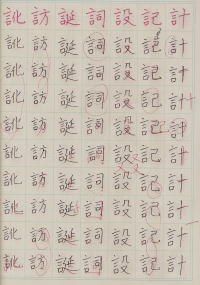 計計計計計計計計計計
記記記記記記記記記記
設設設設設設設設設設
詞詞詞詞詞詞詞詞詞詞
誕誕誕誕誕誕誕誕誕誕
訪訪訪訪訪訪訪訪訪訪
訛訛訛訛訛訛訛訛訛訛